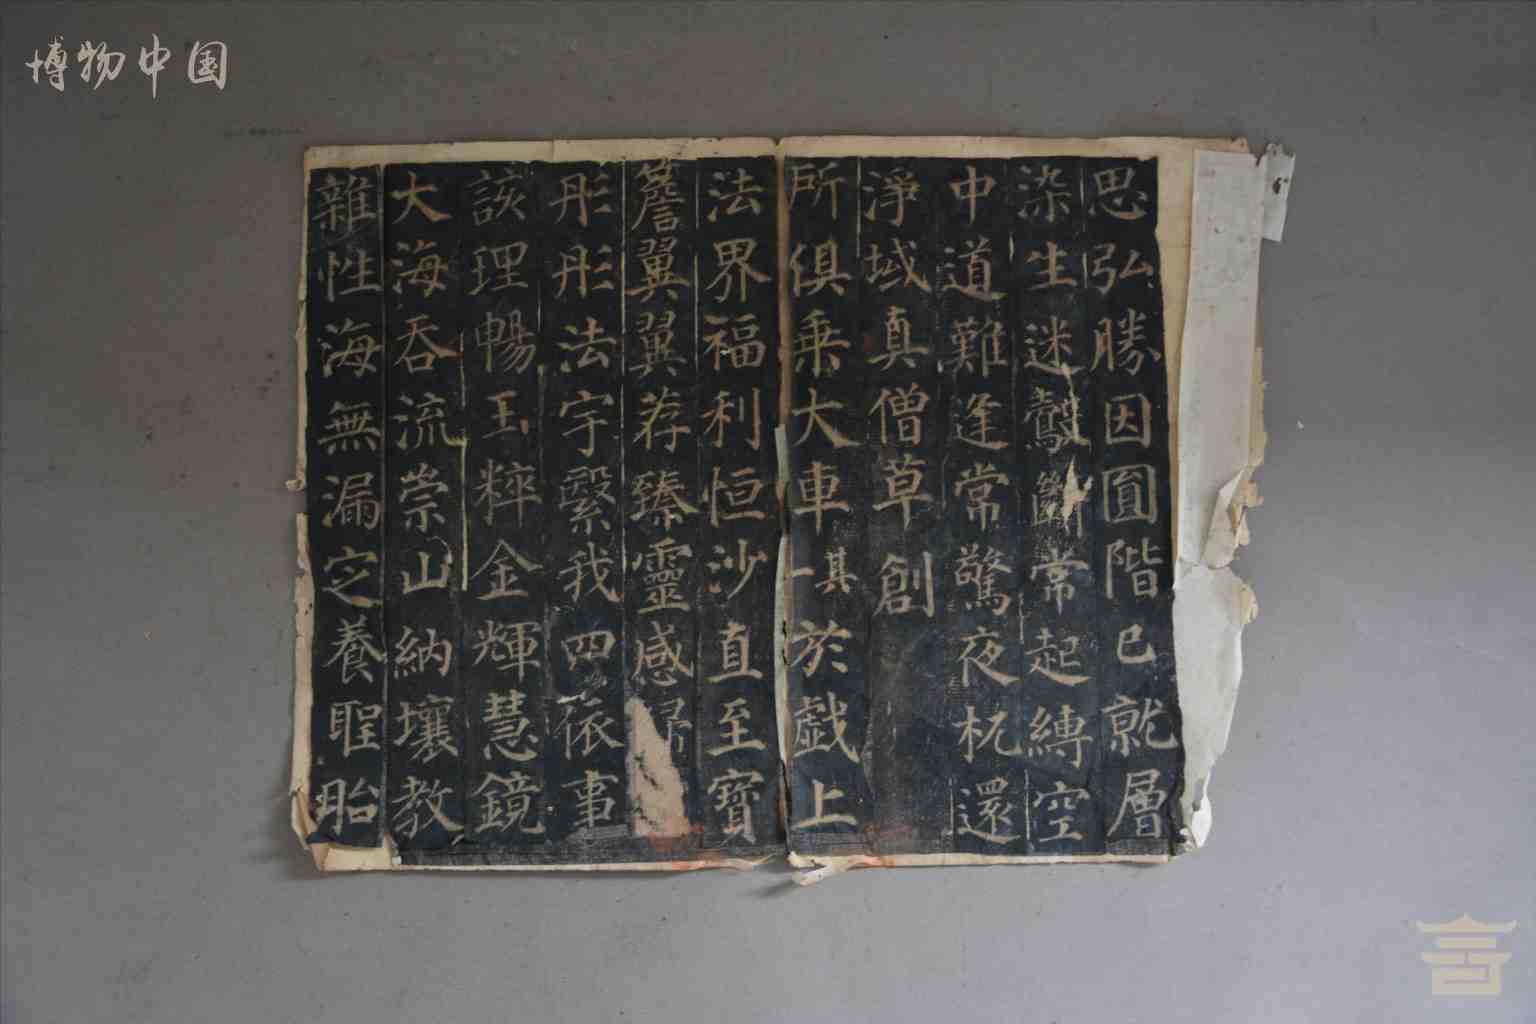 博物中国
思弘勝因圎階已就層
染生迷鷇斷常起縛空
中道難逢常驚夜杌還
淨域真僧草創
所俱乗大車其一於戯上
法界福利恒沙直至寳
簷翼翼荐臻靈感歸
彤彤法宇繄我四依事
該理暢玉粹金輝慧鏡
大海吞流崇山納壤教
雜性海無漏㝎養聖胎